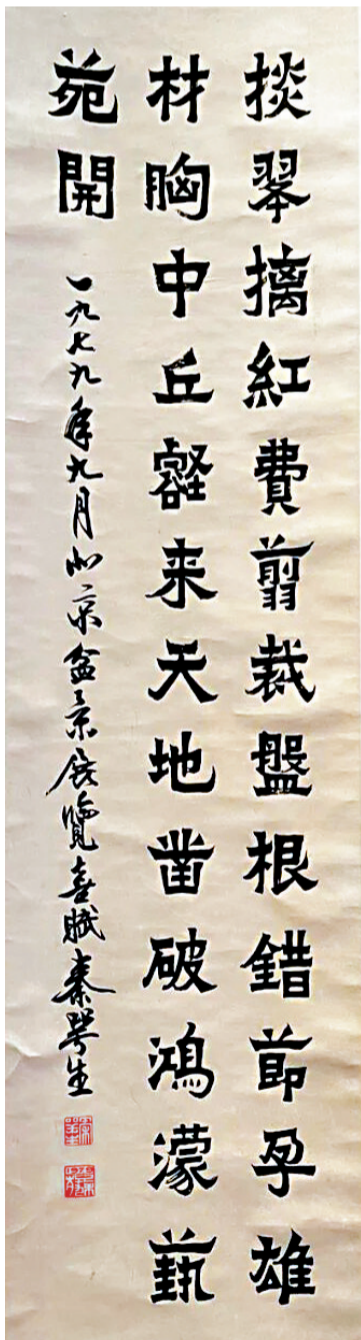 掞翠摛紅費翦裁盤根錯節孕雄
材胸中丘壑来天地凿破鴻濛藝
苑開
一九七九年九月北京盆景展覽喜賦秦咢生